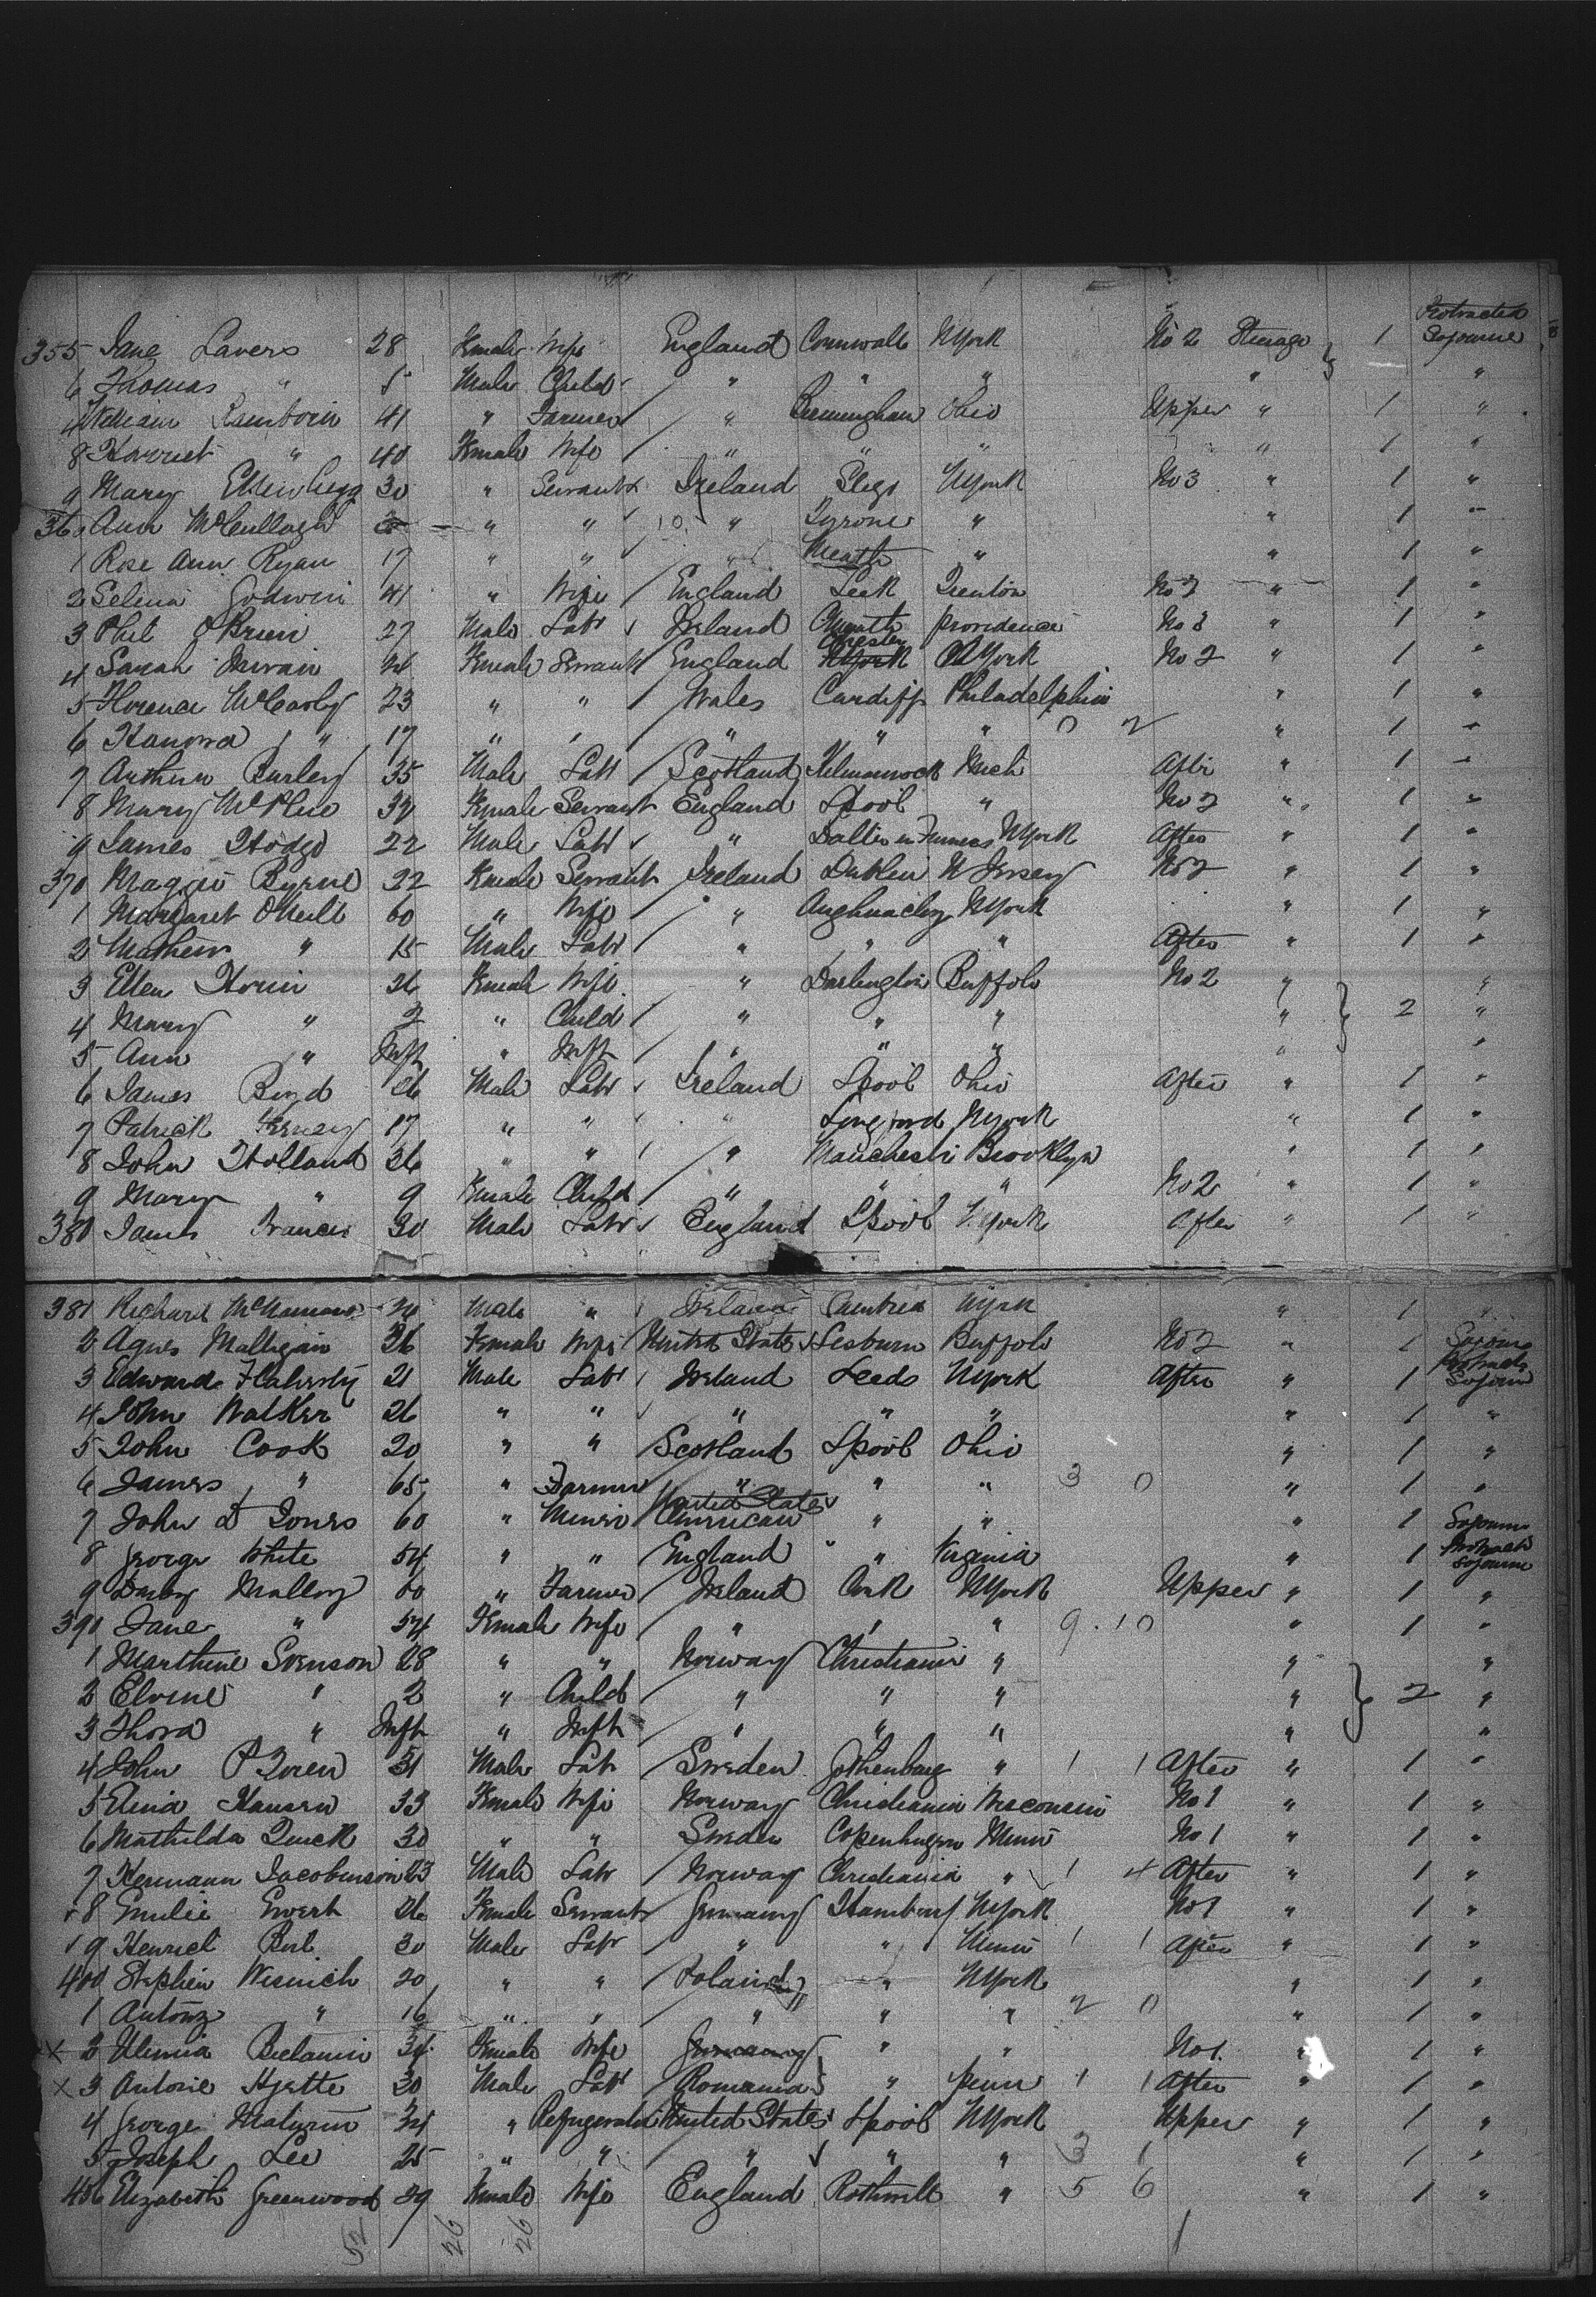 355 Jane Lavers 28 Female Wife England Cornwall NYork No 2 Steerage 1 Protracted Sojourne
6 Thomas " 5 Male Child " " " " "
William 41 " Farmer " Birmingham Ohio Upper " 1 "
8 Harriet " 40 Female Wife " " " " 1 "
9 Mary Ellen 30 " Servant Ireland Sligo NYork No 3 " 1 "
360 Ann McCullagh " " 10 " Tyrone " " 1 "
1 Rose Ann Ryan 17 " " " Meath " " 1 "
2 Selina Godwin 41 " Wife England Leek Trenton No 2 " 1 "
3 Phil OBrien 27 Male Labr Ireland Meath providence No 3 " 1 "
4 Sarah Female Servant England Chester NYork No 2 " 1 "
5 Florence McCarthy 23 " " Wales Cardiff Philadelphia " 1 "
6 Hanora " 17 " " " " " 0 2 " 1 "
7 Arthur Burley 35 Male Labr Scotland Kilmarnock Mich After " 1 "
8 Mary McPhee Female Servant England Lpool " No 2 " 1 "
9 James Hodge 22 Male Labr " Dalton in Furness NYork After " 1 "
370 Maggie Byrne 22 Female Servant Ireland Dublin N Jersey No 2 " 1 "
1 Margaret ONeill 60 " Wife " Aughnacloy NYork " 1 "
2 Mathew " 15 Male Labr " " " After " 1 "
3 Ellen 26 Female Wife " Darlington Buffalo No 2 " "
4 Mary " 2 " Child " " " " 2 "
5 Ann " Inft " Inft " " " " "
6 James Boyd 26 Male Labr Ireland Lpool Ohio After " 1 "
7 Patrick 17 " " " Longford NYork " 1 "
8 John Holland 36 " " " Manchester Brooklyn " 1 "
9 Mary " 9 Female Child " " " No 2 " 1 "
380 James Francis 30 Male Labr England Lpool N. York After " 1 "
381 Richard McNamara Male " Ireland NYork " 1 "
2 Agnes Mulligan 36 Female Wife United States Lisburn Buffalo No 2 " 1 Sojourn
3 Edward Flaherty 21 Male Labr Ireland Leeds NYork After " 1 Protracted Sojourn
4 John Walker 26 " " " " " " 1 "
5 John Cook 20 " " Scotland Lpool Ohio " 1 "
6 James " 65 " Farmer " " " 3 0 " 1 "
7 John D Jones 60 " Miner United States American " " " 1 Sojourn
8 George White 54 " " England " Virginia " 1 Protracted Sojourne
9 Darby Malloy 60 " Farmer Ireland Cork NYork Upper " 1 "
390 Jane " 54 Female Wife " " " 9 . 10 " 1 "
1 Marthine Svenson 28 " " Norway Christiania " " "
2 Elvine " 2 " Child " " " " 2 "
3 Thora " Inft " Inft " " " " "
4 John P 31 Male Labr Sweden Gothenburg " 1 1 After " 1 "
5 Elina Hansen 33 Female Wife Norway Christiania Wisconsin No 1 " 1 "
6 Mathilda Quick 30 " " Sweden Copenhagen Minn No 1 " 1 "
7 Hermann Jacobinson 23 Male Labr Norway Christiania " 1 4 After " 1 "
8 Emilie Ewert 26 Female Servant Germany Hamburg NYork No 1 " 1 "
9 Henrich 30 Male Labr " " Minn 1 1 After " 1 "
400 Stephen Wisnich 20 " " Poland " NYork " 1 "
1 Antony " 16 " " " " " 2 0 " 1 "
x 2 Female Wife Germany " " No 1. " 1 "
x 3 Antonie 30 Male Labr Romania " Penn 1 1 After " 1 "
4 George Maturin " United States Lpool NYork Upper " 1 "
5 Joseph Lee 25 " " " " " 3 1 " 1 "
406 Elizabeth Greenwood 29 Female Wife England Rothwell " 5 6 " 1 "
52 26 26